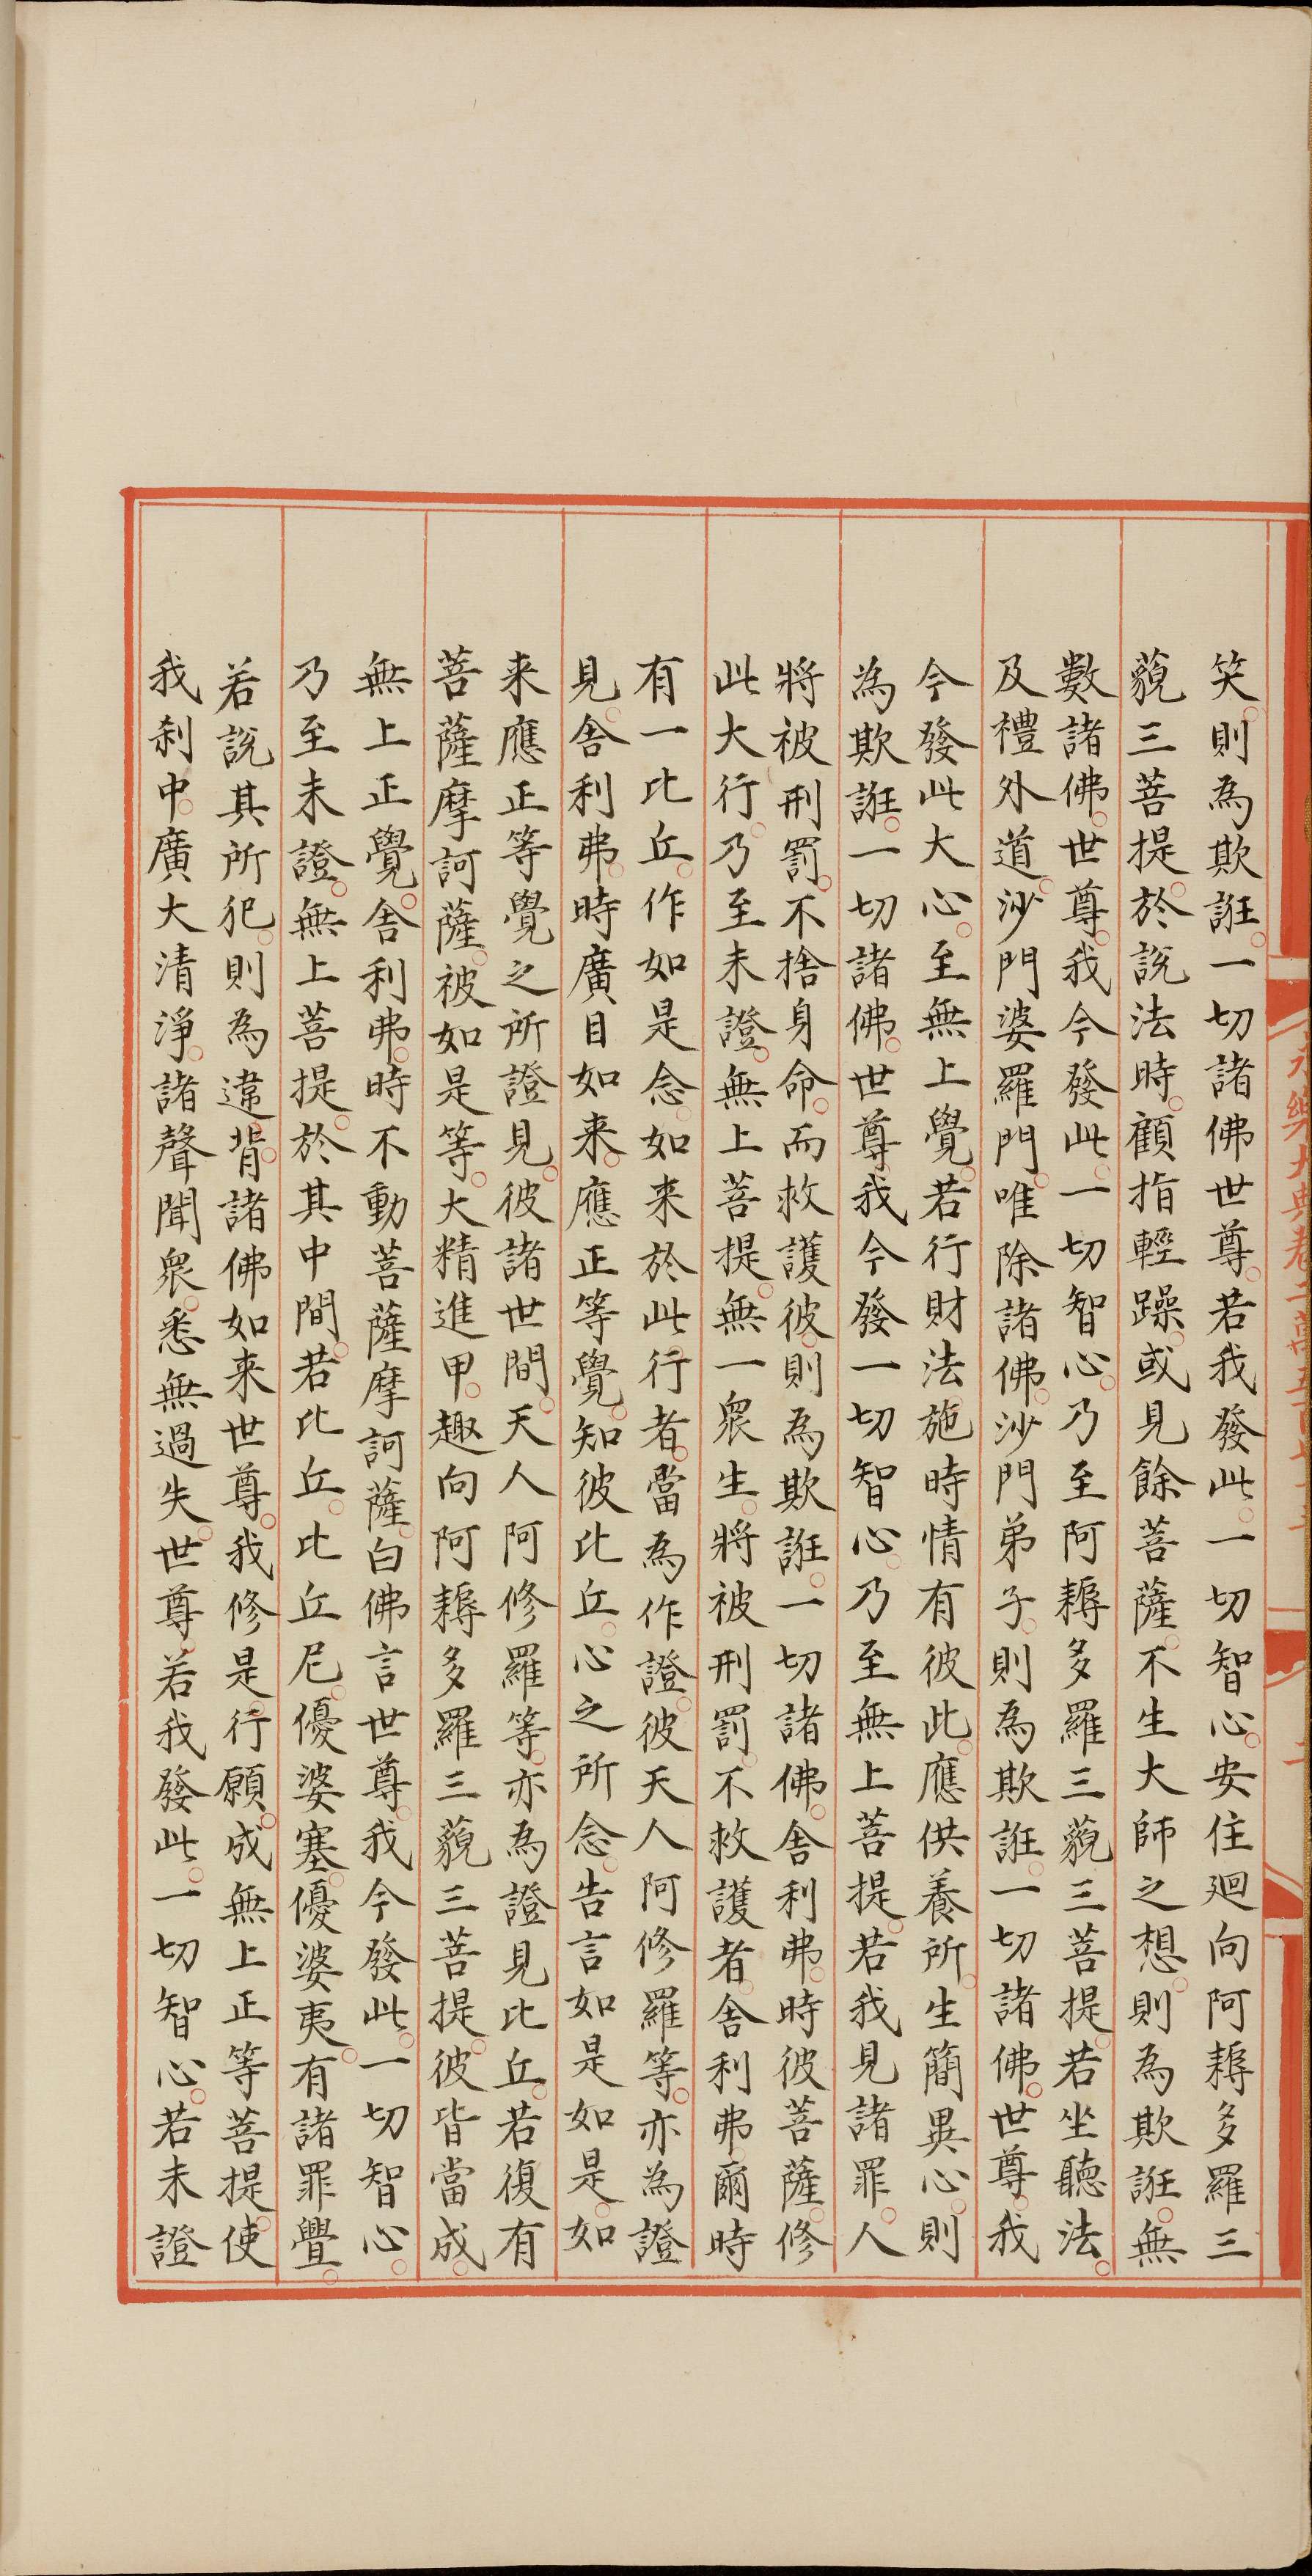 笑則為欺誑一切諸佛世尊若我發此一切智心安住廻向阿耨多羅三
藐三菩提於說法時顧指輕躁或見餘菩薩不生大師之想則為欺誑無
數諸佛世尊我今發此一切智心乃至阿耨多羅三藐三菩提若坐聽法
及禮外道沙門婆羅門唯除諸佛沙門弟子則為欺誑一切諸佛世尊我
今發此大心至無上覺若行財法施時情有彼此應供養所生簡異心則
為欺誑一切諸佛世尊我今發一切智心乃至無上菩提若我見諸罪人
將被刑罰不捨身命而救護彼則為欺誑一切諸佛舍利弗時彼菩薩修
此大行乃至未證無上菩提無一眾生將被刑罰不救護者舍利弗爾時
有一比丘作如是念如来於此行者當為作證彼天人阿修羅等亦為證
見舍利弗時廣目如来應正等覺知彼比丘心之所念告言如是如是如
来應正等覺之所證見彼諸世間天人阿修羅等亦為證見比丘若復有
菩薩摩訶薩被如是等大精進甲趣向阿耨多羅三藐三菩提彼皆當成
無上正覺舍利弗時不動菩薩摩訶薩白佛言世尊我今發此一切智心
乃至未證無上菩提於其中間若比丘比丘尼優婆塞優婆夷有諸罪舋
若說其所犯則為違背諸佛如来世尊我修是行願成無上正等菩提使
我刹中廣大清淨諸聲聞眾悉無過失世尊若我發此一切智心若未證